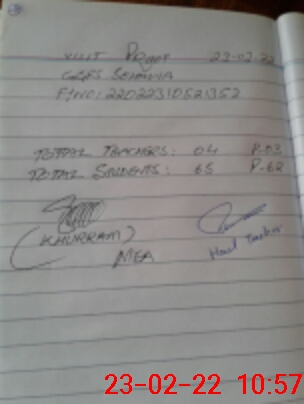 VISIT PROOF 23-02-22
GGPS SEHANNA
F/NO: 22022310521352
TOTAL TEACHERS: 04 P-03
TOTAL STUDENTS: 65 P-62
(KHURRAM)
MEA
Head Teacher
23-02-22 10:57